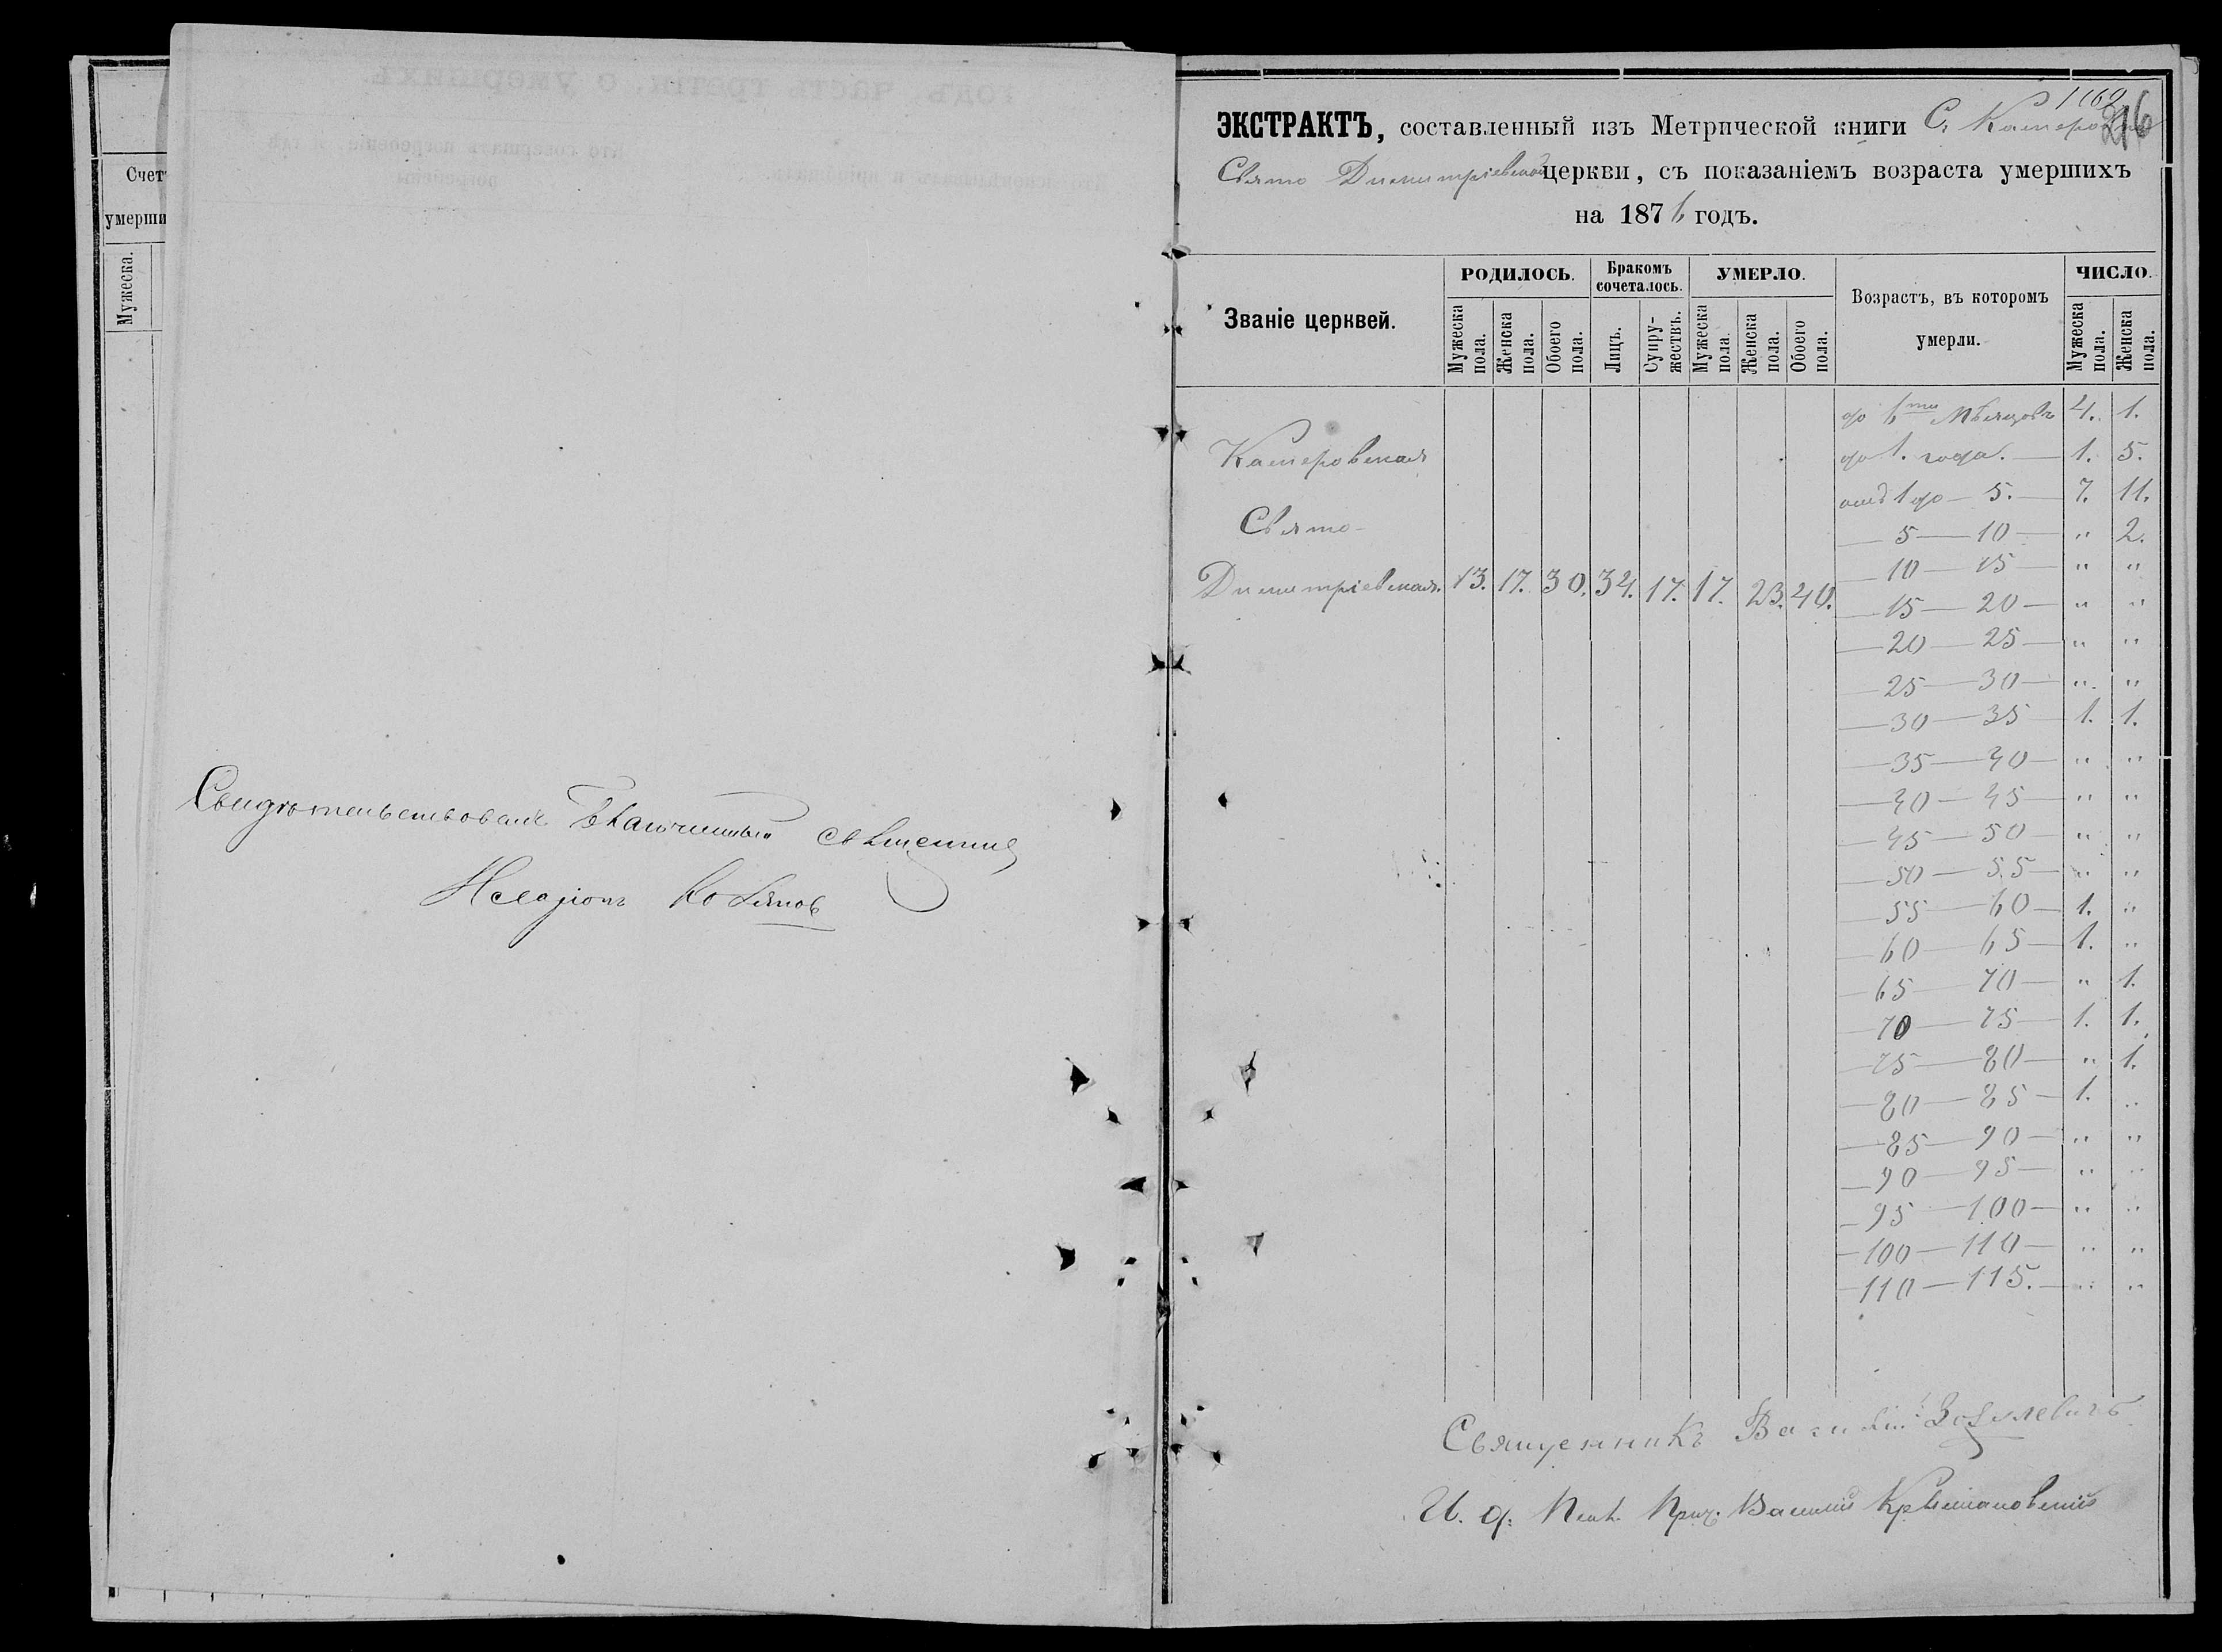 Счет
умерши
Мужеска.
Свидѣтельствовалъ Благочинный священникъ
1160
216
ЭКСТРАКТЪ, составленный изъ Метрической книги С. Катеровки
Свято Димитріевской церкви, съ показаніемъ возраста умершихъ
на 1876 годъ.
Званіе церквей. РОДИЛОСЬ. Бракомъ сочеталось. УМЕРЛО. Возрастъ, въ которомъ умерли. ЧИСЛО.
Мужеска пола. Женска пола. Обоего пола. Лицъ. Супру-жествъ. Мужеска пола. Женска пола. Обоего пола. Мужеска пола. Женска пола.
до 6ти Мѣсяцовъ 4. 1.
Катеровская до 1. года. — 1. 5.
отъ 1 до — 5. — 7. 11.
Свято-
— 5 — 10 — " 2.
— 10 — 15 — " "
Димитріевская. 13. 17. 30. 34. 17. 17. 23. 40.
— 15 — 20 — " "
— 20 — 25 — " "
— 25 — 30 — " "
— 30 — 35 — 1. 1.
— 35 — 40 — " "
— 40 — 45 — " "
— 45 — 50 — " "
— 50 — 55 — " "
— 55 — 60 — 1. "
— 60 — 65 — 1. "
— 65 — 70 — " 1.
— 70 — 75 — 1. 1.
— 75 — 80 — " 1.
— 80 — 85 — 1. "
— 85 — 90 — " "
— 90 — 95 — " "
— 95 — 100 — " "
— 100 — 110 — " "
— 110 — 115. — " "
Священникъ Василій
И. д. Псал. Василій Крыжановскій